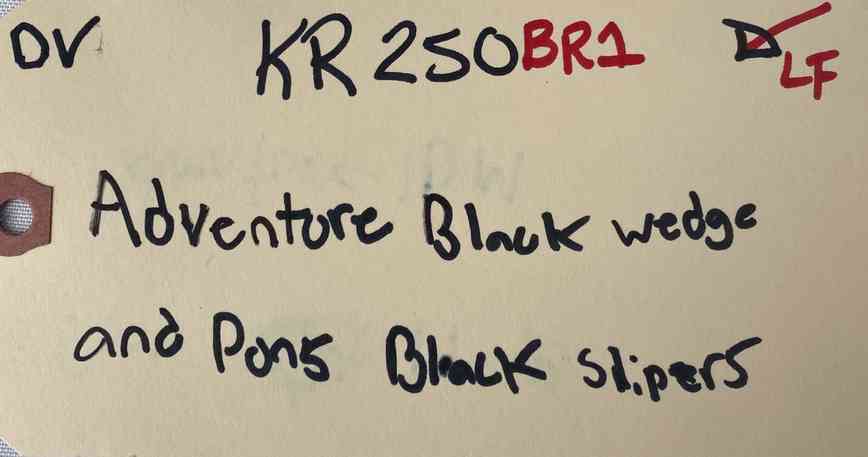 DV KR250BR1 D LF
Adventure Black wedge
and Pons Black slipers